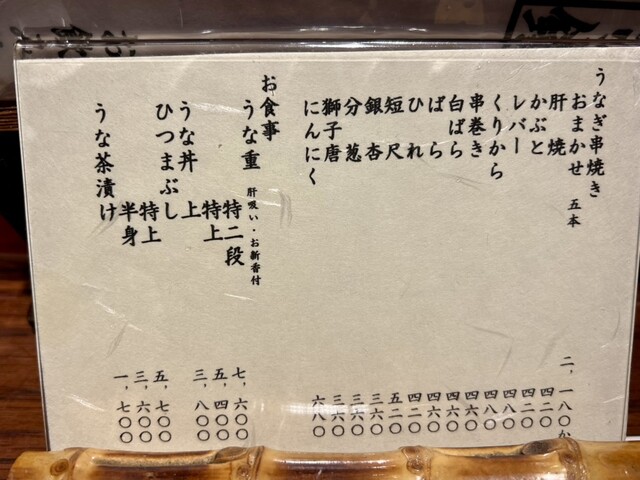 うなぎ串焼き
おまかせ 五本 二、一八〇か
肝焼 四二〇
かぶと 四二〇
レバー 四八〇
くりから 四八〇
串巻き 四六〇
白ばら 四六〇
ばら 四六〇
ひれ 四二〇
短尺 五二〇
銀杏 三六〇
分葱 三六〇
獅子唐 三六〇
にんにく 六八〇
お食事
うな重 肝吸い・お新香付
特二段 七、六〇〇
特上 五、四〇〇
うな丼 上 三、八〇〇
ひつまぶし 特上 五、七〇〇
半身 三、六〇〇
うな茶漬け 一、七〇〇